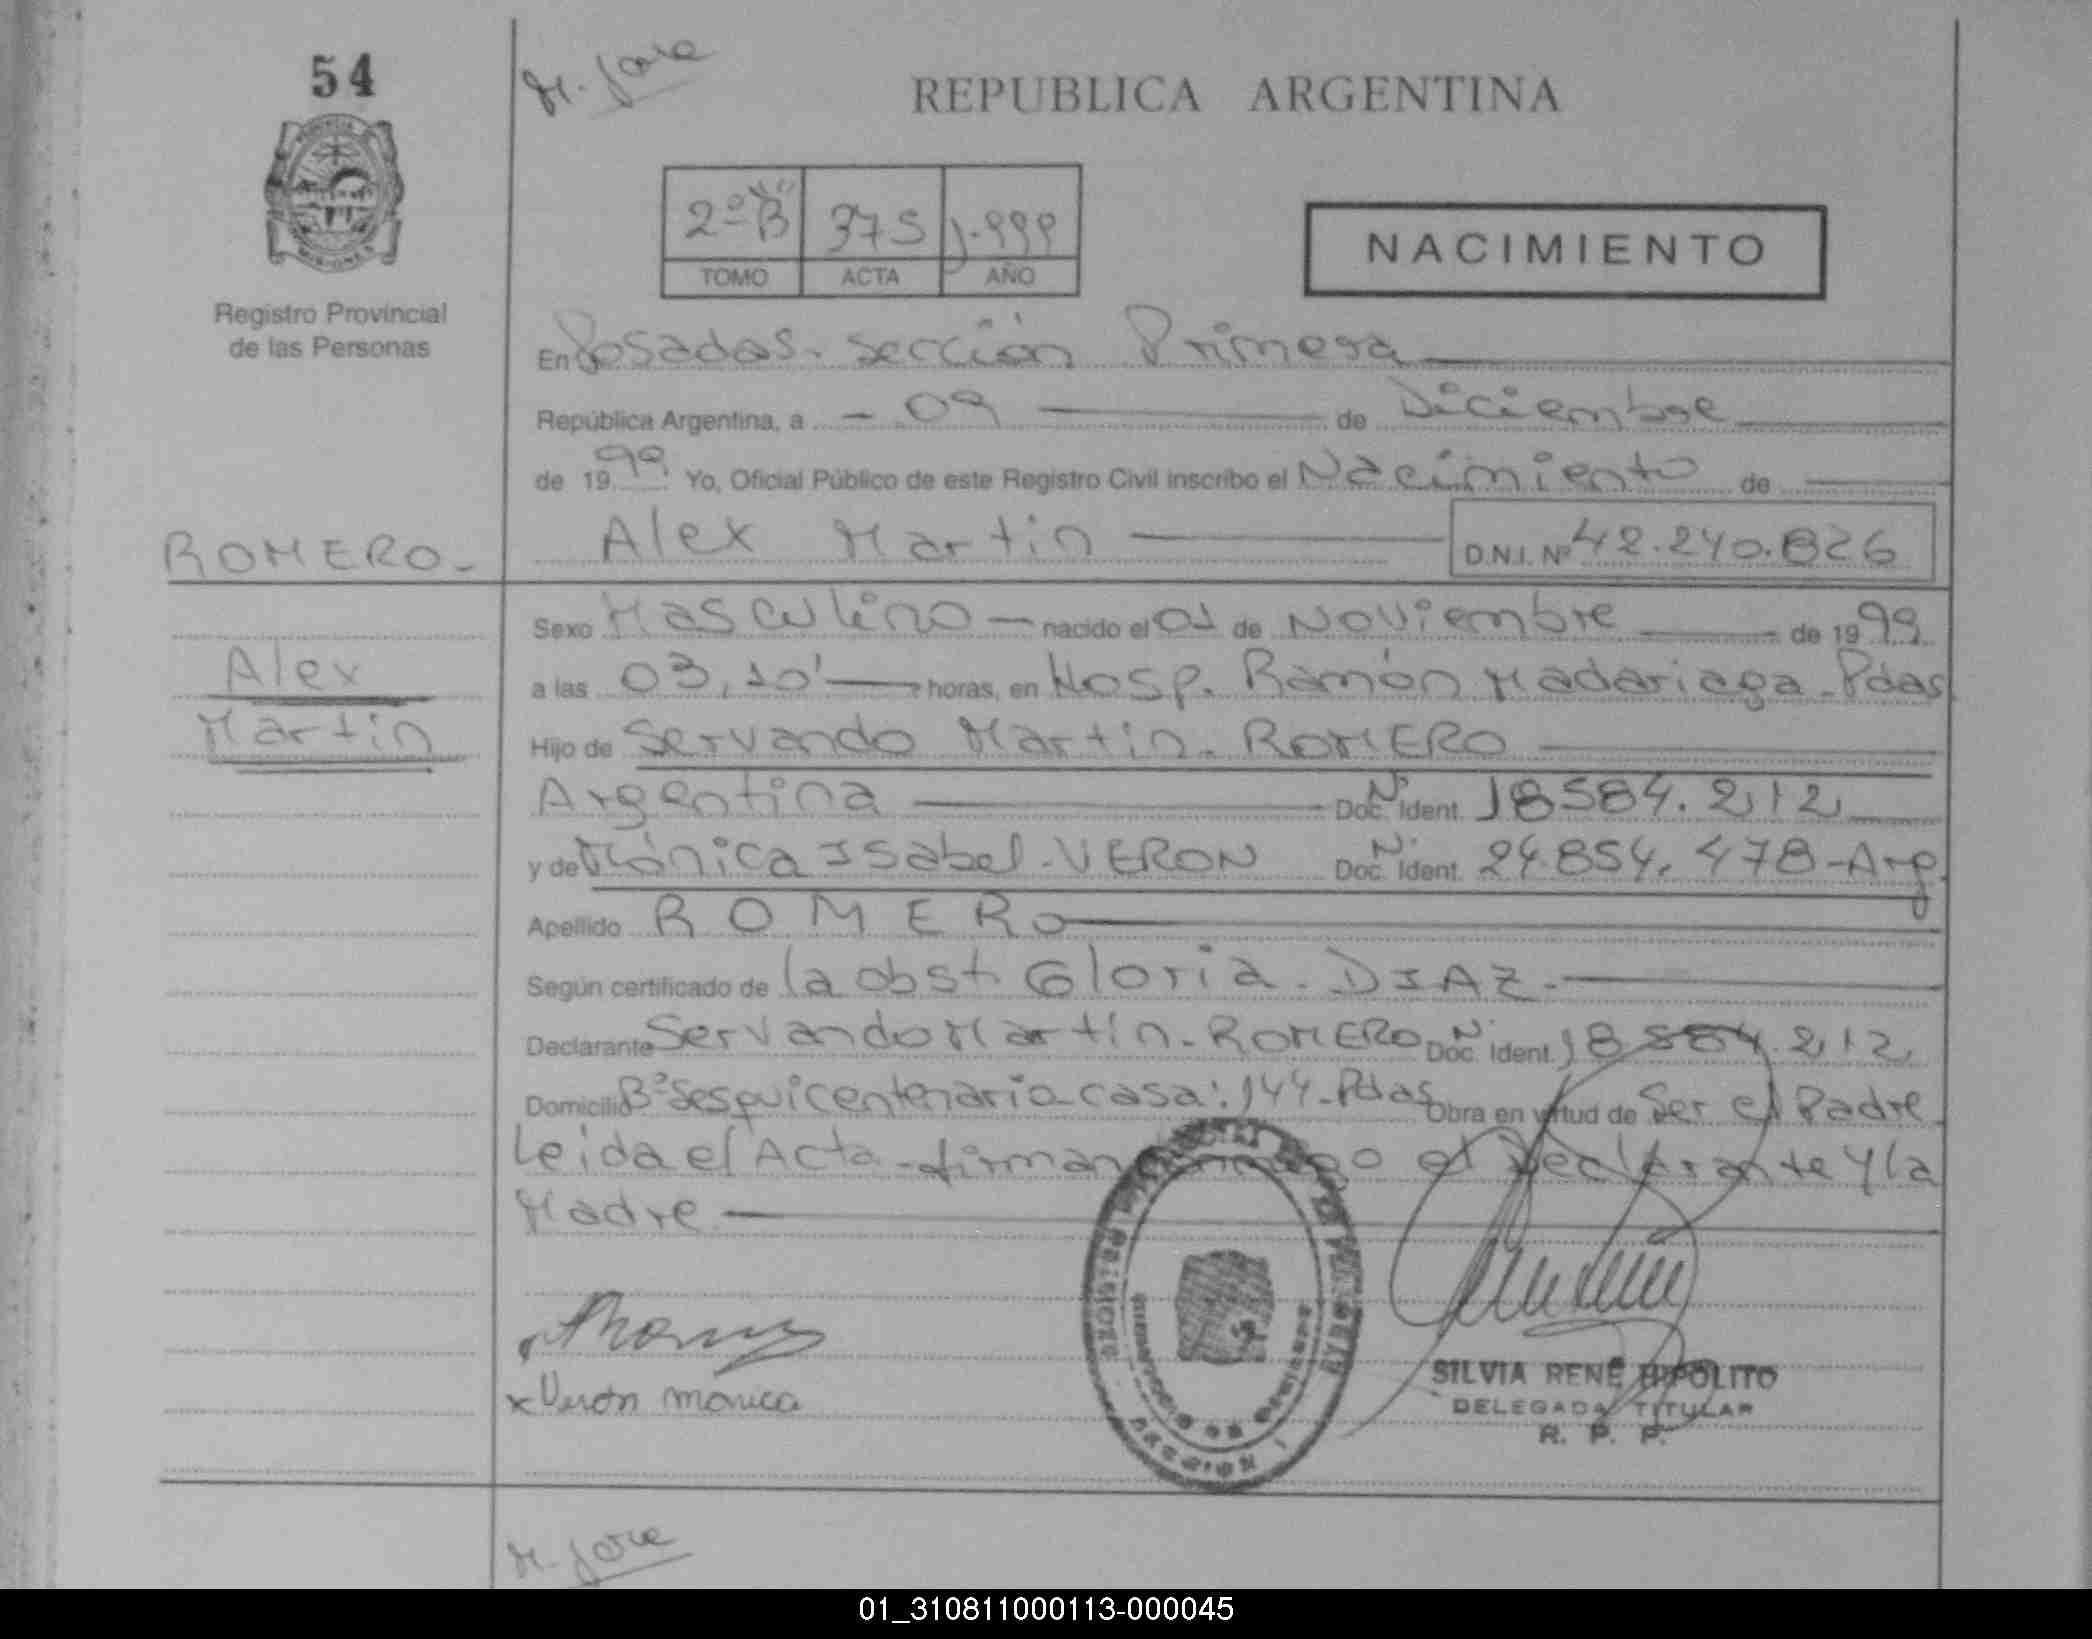 54
M. Jose
REPUBLICA ARGENTINA
2º B 375 1.999
TOMO ACTA AÑO
NACIMIENTO
Registro Provincial
de las Personas
En Posadas. sección Primera
República Argentina, a - 09 de Diciembre
de 1999 Yo, Oficial Público de este Registro Civil inscribo el Nacimiento de
ROMERO.- Alex Martin D.N.I. Nº 42.240.826
Sexo Masculino nacido el 01 de Noviembre de 1999
Alex
a las 03,10' horas, en Hosp. Ramón Madariaga-Pdas
Martin
Hijo de Servando Martin. ROMERO
Argentina Doc. Ident. Nº 18584.212
y de Mónica Isabel-VERON Doc. Ident. Nº 24.854.478-Arg.
Apellido ROMERO
Según certificado de la obst. Gloria. DIAZ.
Declarante Servando Martin. ROMERO Doc. Ident. Nº 18584.212
Domicilio Bº Sesquicentenario-casa: 144-Pdas Obra en virtud de Ser el Padre
Leida el Acta-firman conmigo el Declarante y la
Madre.
x Veron monica
SILVIA RENÉ HIPOLITO
DELEGADA TITULAR
R. P. P.
M. Jose
01_310811000113-000045